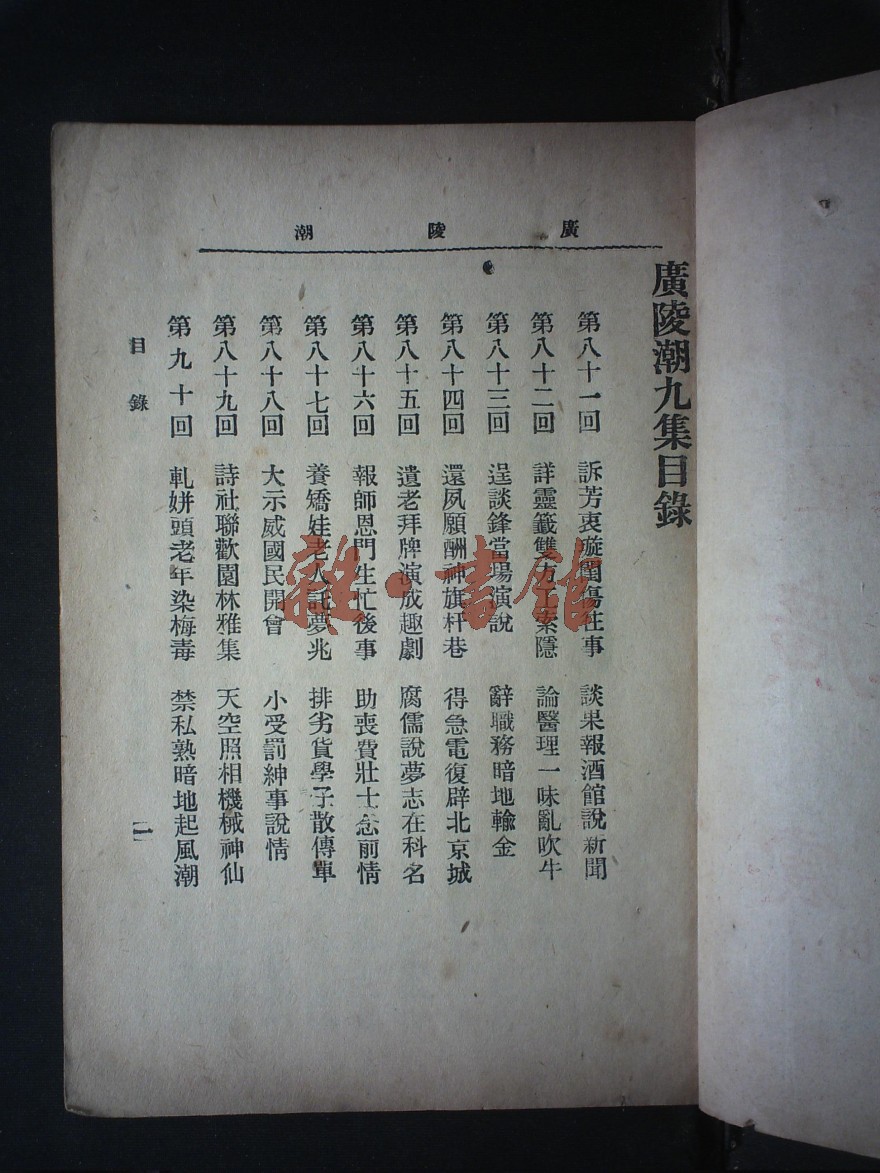 廣陵潮
廣陵潮九集目錄
第八十一回 訴芳衷璇閨傷往事 談果報酒館說新聞
第八十二回 詳靈籤雙方工索隱 論醫理一味亂吹牛
第八十三回 逞談鋒當場演說 辭職務暗地輸金
第八十四回 還夙願酬神旗杆巷 得急電復辟北京城
第八十五回 遺老拜牌演成趣劇 腐儒說夢志在科名
第八十六回 報師恩門生忙後事 助喪費壯士念前情
第八十七回 養矯娃老人託夢兆 排劣貨學子散傳單
第八十八回 大示威國民開會 小受罰紳事說情
第八十九回 詩社聯歡園林雅集 天空照相機械神仙
第九十回 軋姘頭老年染梅毒 禁私熟暗地起風潮
目錄
一
雜·書館